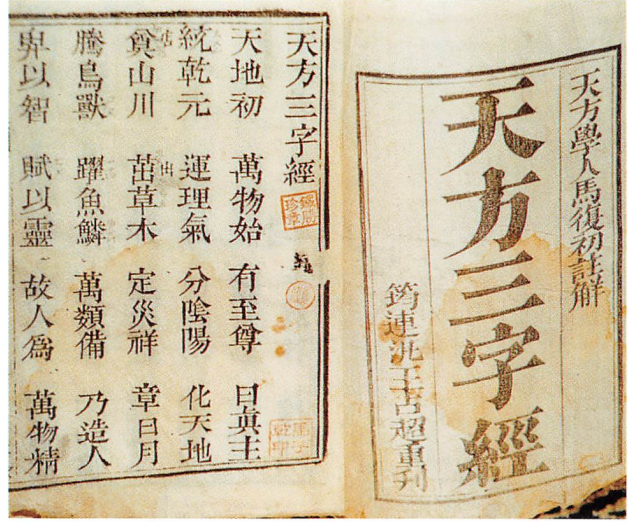 天方學人馬復初註解
天方三字經
筠連王超重刊
天方三字經
天地初 萬物始 有至尊 曰眞主
統乾元 運理氣 分陰陽 化天地
奠山川 茁草木 定災祥 章日月
騰鳥獸 躍魚鱗 萬類備 乃造人
畀以智 賦以靈 故人爲 萬物精